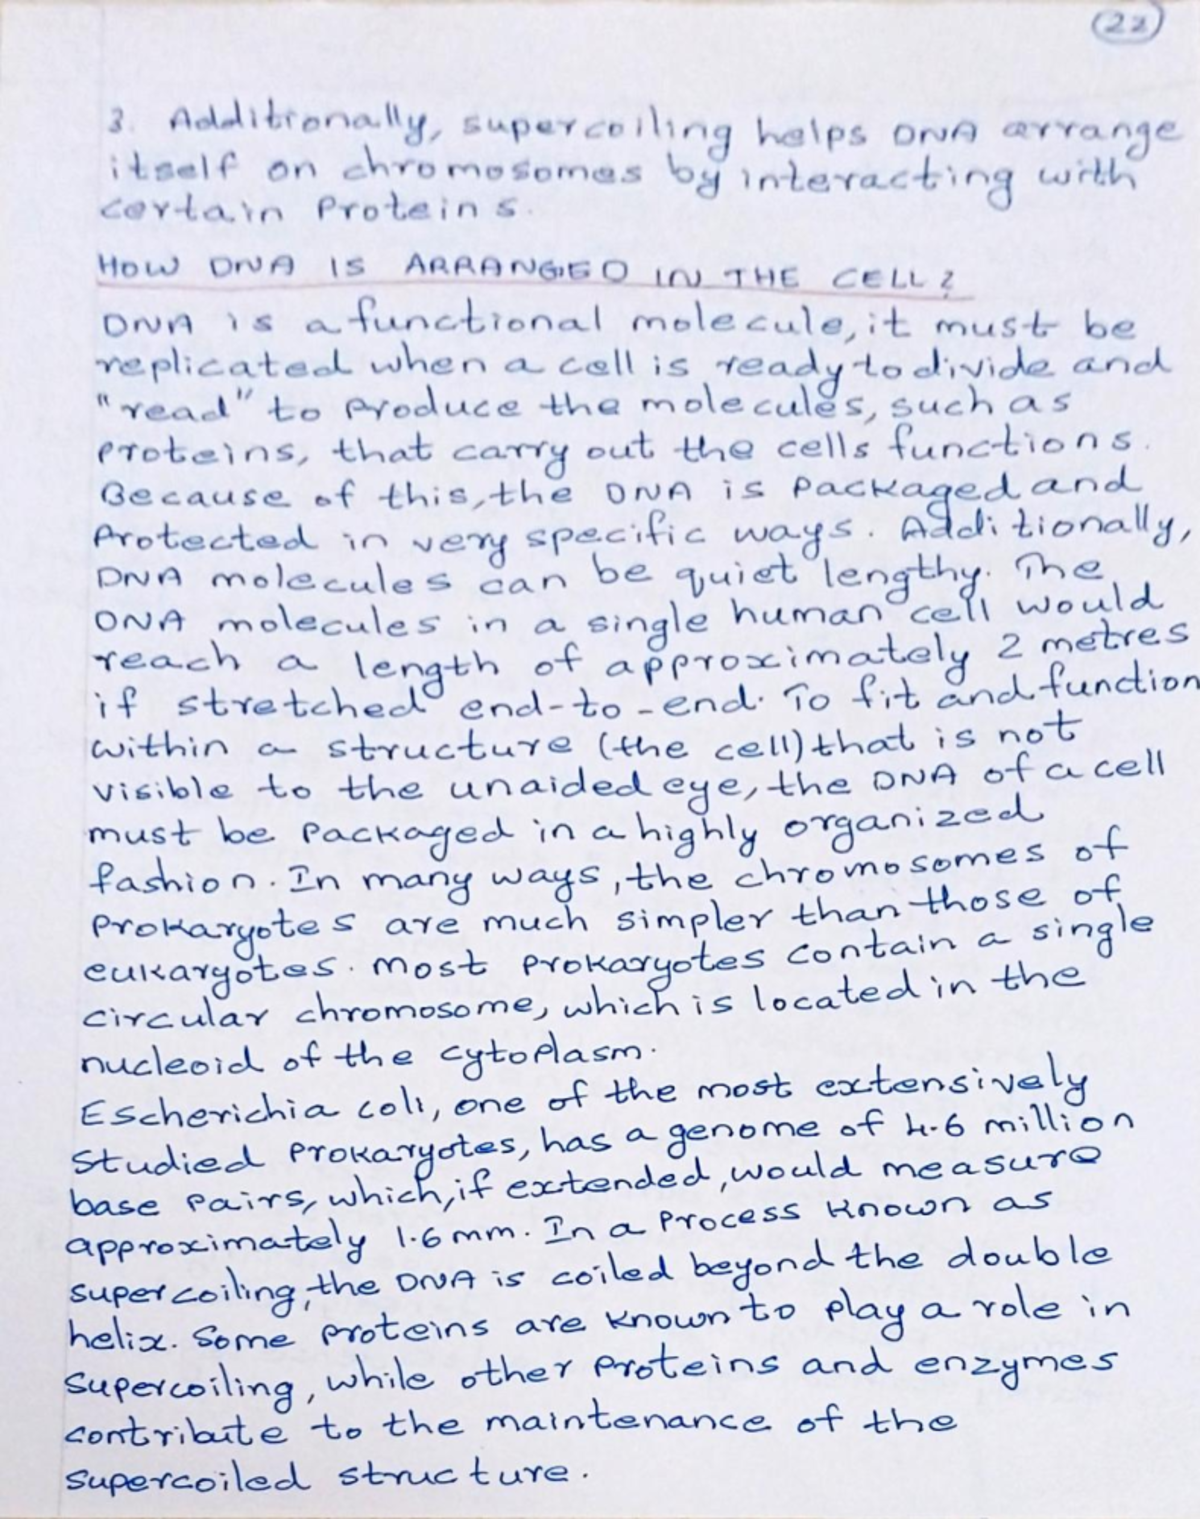 22
3. Additionally, supercoiling helps DNA arrange
itself on chromosomes by interacting with
certain Proteins.
HOW DNA IS ARRANGED IN THE CELL?
DNA is a functional molecule, it must be
replicated when a cell is ready to divide and
"read" to produce the molecules, such as
proteins, that carry out the cells functions.
Because of this, the DNA is packaged and
Protected in very specific ways. Additionally,
DNA molecules can be quiet lengthy. The
DNA molecules in a single human cell would
reach a length of approximately 2 metres
if stretched end-to-end. To fit and function
within a structure (the cell) that is not
visible to the unaided eye, the DNA of a cell
must be packaged in a highly organized
fashion. In many ways, the chromosomes of
prokaryotes are much simpler than those of
eukaryotes. Most prokaryotes contain a single
circular chromosome, which is located in the
nucleoid of the cytoplasm.
Escherichia coli, one of the most extensively
studied prokaryotes, has a genome of 4.6 million
base pairs, which, if extended, would measure
approximately 1.6 mm. In a process known as
supercoiling, the DNA is coiled beyond the double
helix. Some proteins are known to play a role in
supercoiling, while other proteins and enzymes
contribute to the maintenance of the
supercoiled structure.